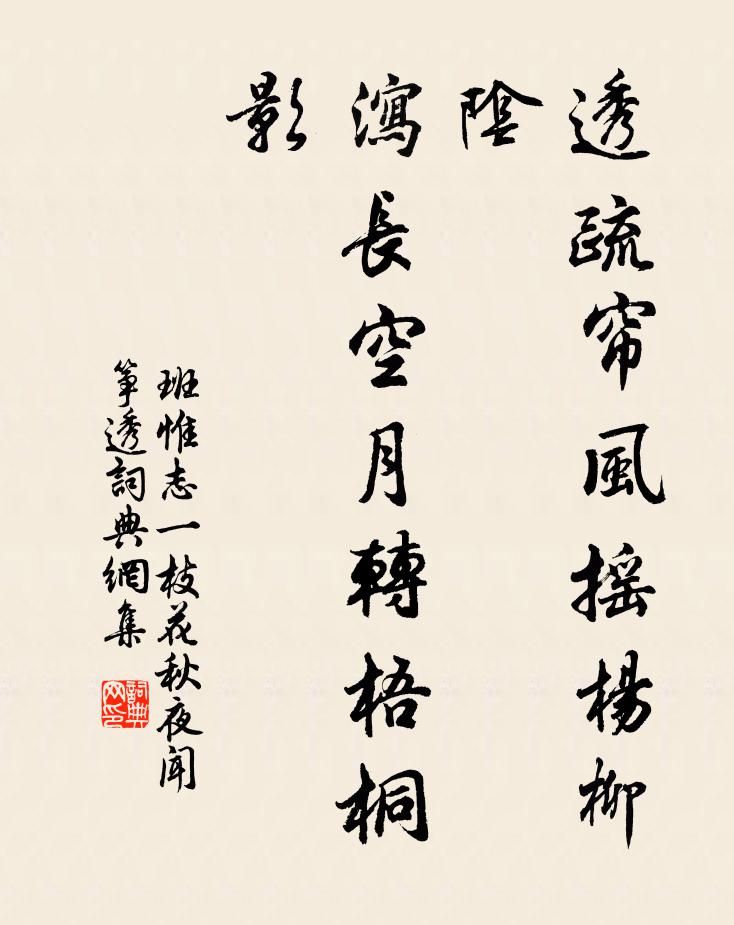 透疏帘風摇楊柳
陰
瀉長空月轉梧桐
影
班惟志一枝花秋夜聞
筝透詞典網集
詞典
网印